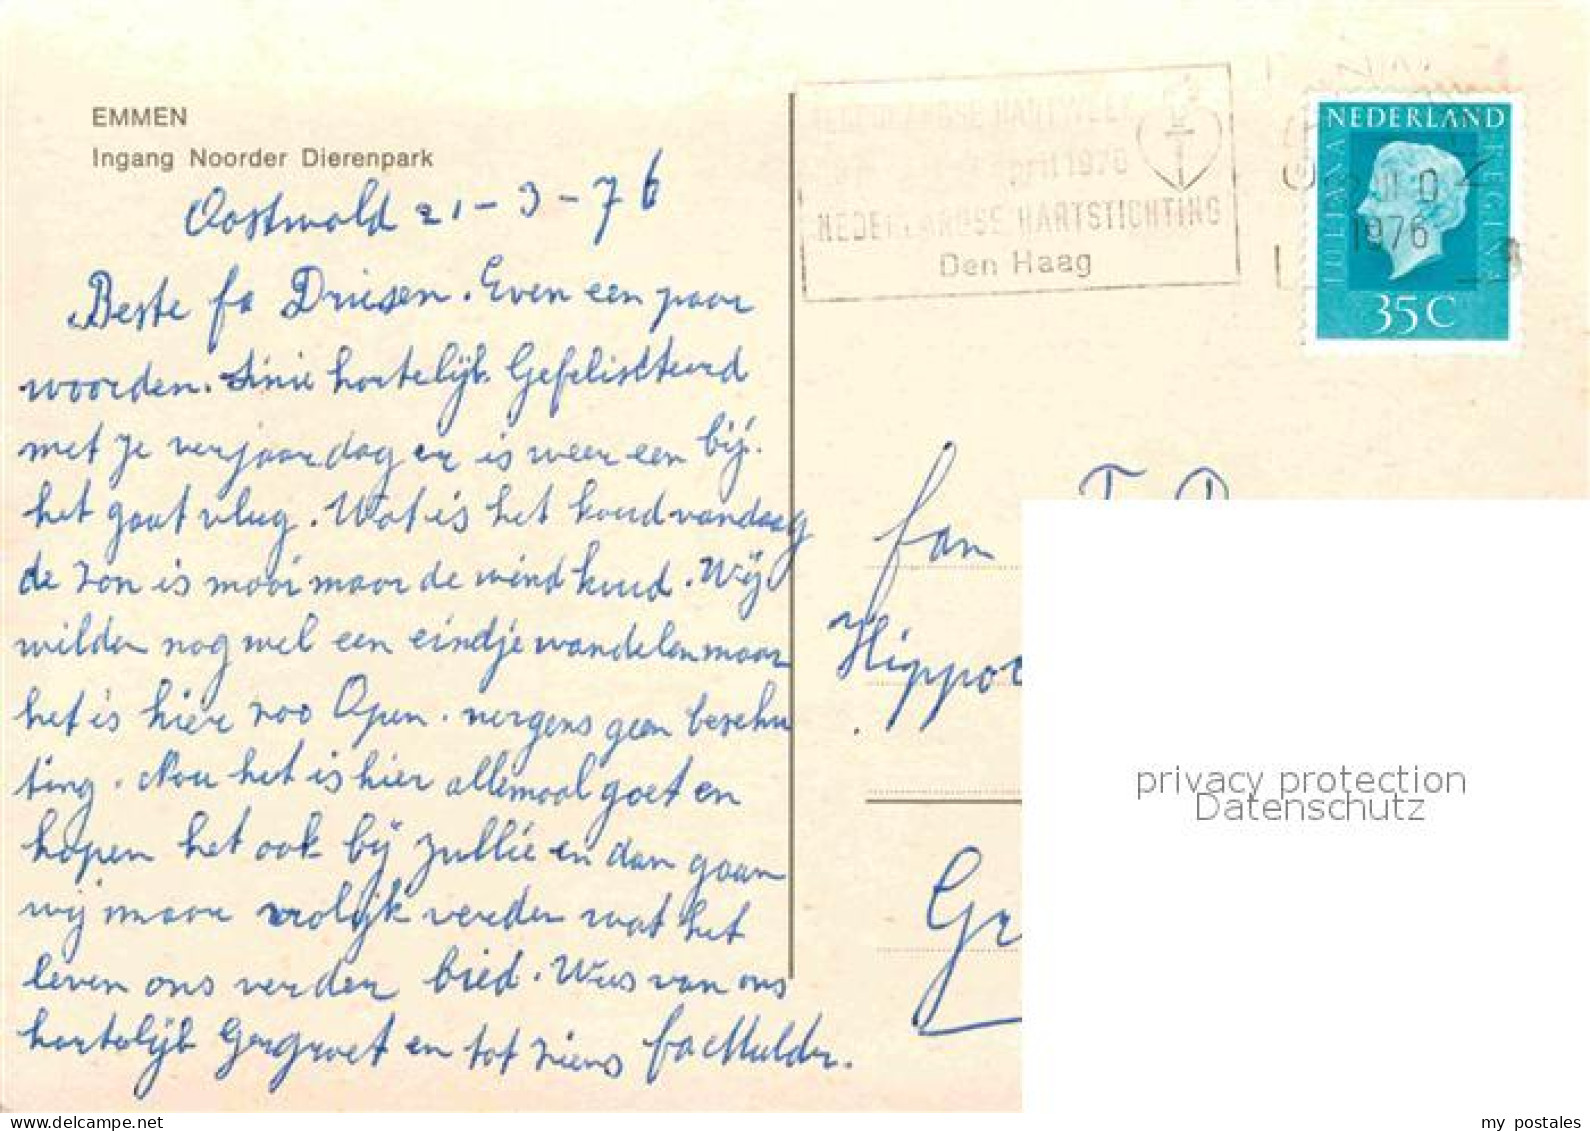 EMMEN
Ingang Noorder Dierenpark
Oostwold 21-3-76
Beste fa Driesen. Even een paar
woorden. Sinie hartelijk Gefelisiteerd
met je verjaardag er is weer een bij.
het gaat vlug. Wat is het koud vandaag
de zon is mooi maar de wind koud. Wij
wilden nog wel een eindje wandelen maar
het is hier zoo Open. nergens geen beschu
ting. Nou het is hier allemaal goet en
hopen het ook bij zullie en dan gaan
wij maar vrolijk verder wat het
leven ons verder bied. Wees van ons
hartelijk Gegroet en tot ziens fa Mulder.
NEDERLANDSE HARTWEEK
april 1976
NEDERLANDSE HARTSTICHTING
Den Haag
NEDERLAND
JULIANA REGINA
1976
35 C
fam
Hippo
Gr
privacy protection
Datenschutz
www.delcampe.net
my_postales